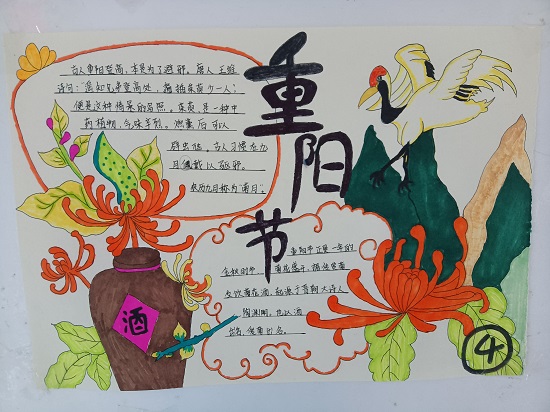 重阳节
古人重阳登高，本是为了避邪。唐人王维
诗句："遥知兄弟登高处，遍插茱萸少一人，
便是这种情景的写照。茱萸，是一种中
药植物，气味辛烈。燃熏后可以
群虫怯。古人习惯在九
月佩戴以驱邪。
重阳节正是一年的
金秋时节，菊花盛开，
饮菊花酒，起源于晋朝大诗人
陶渊明，他以酒
出名。
酒
4